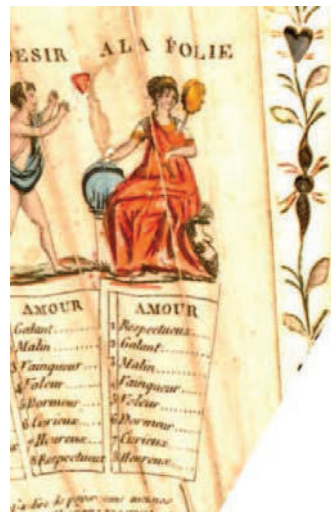 DESIR A LA FOLIE
AMOUR
Galant
2 Malin
3 Vainqueur
4 Voleur
5 Dormeur
6 Curieux
7 Heureux
8 Respectueux
AMOUR
1 Respectueux
2 Galant
3 Malin
4 Vainqueur
5 Voleur
6 Dormeur
7 Curieux
8 Heureux